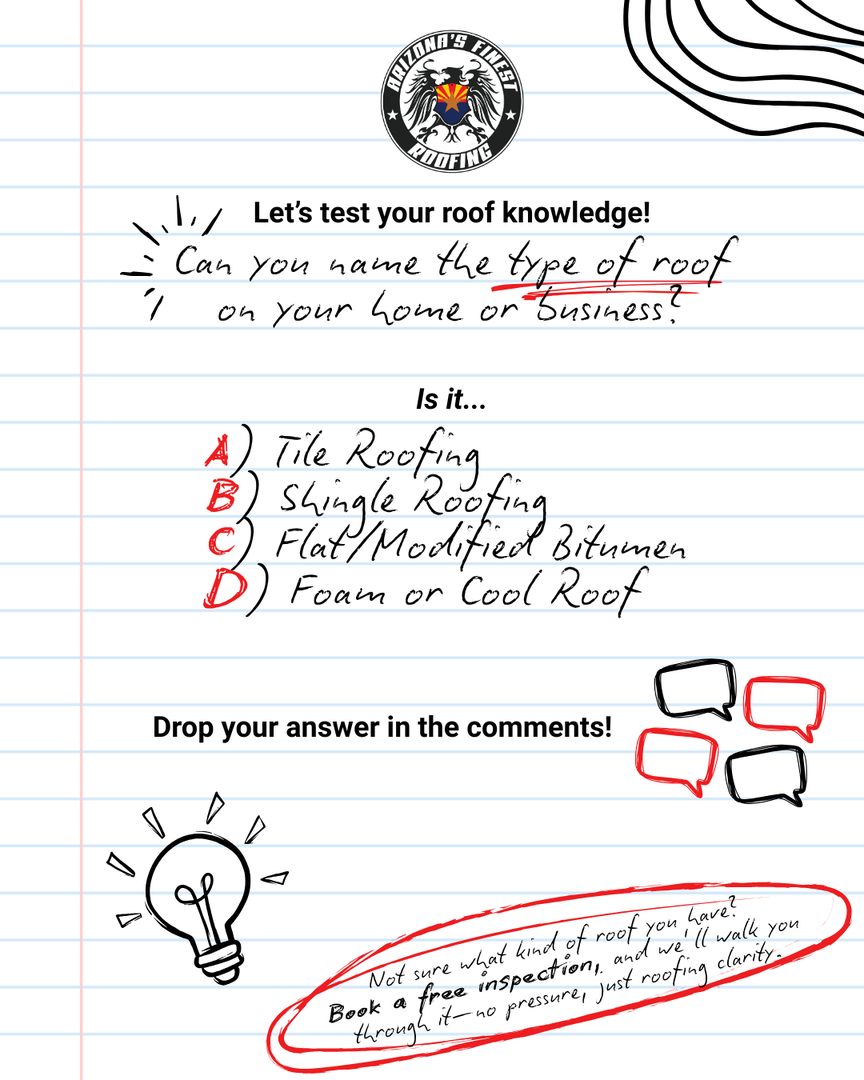 ARIZONA'S FINEST
ROOFING
Let's test your roof knowledge!
Can you name the type of roof
on your home or business?
Is it...
A) Tile Roofing
B) Shingle Roofing
C) Flat/Modified Bitumen
D) Foam or Cool Roof
Drop your answer in the comments!
Not sure what kind of roof you have?
Book a free inspection, and we'll walk you
through it—no pressure, just roofing clarity.